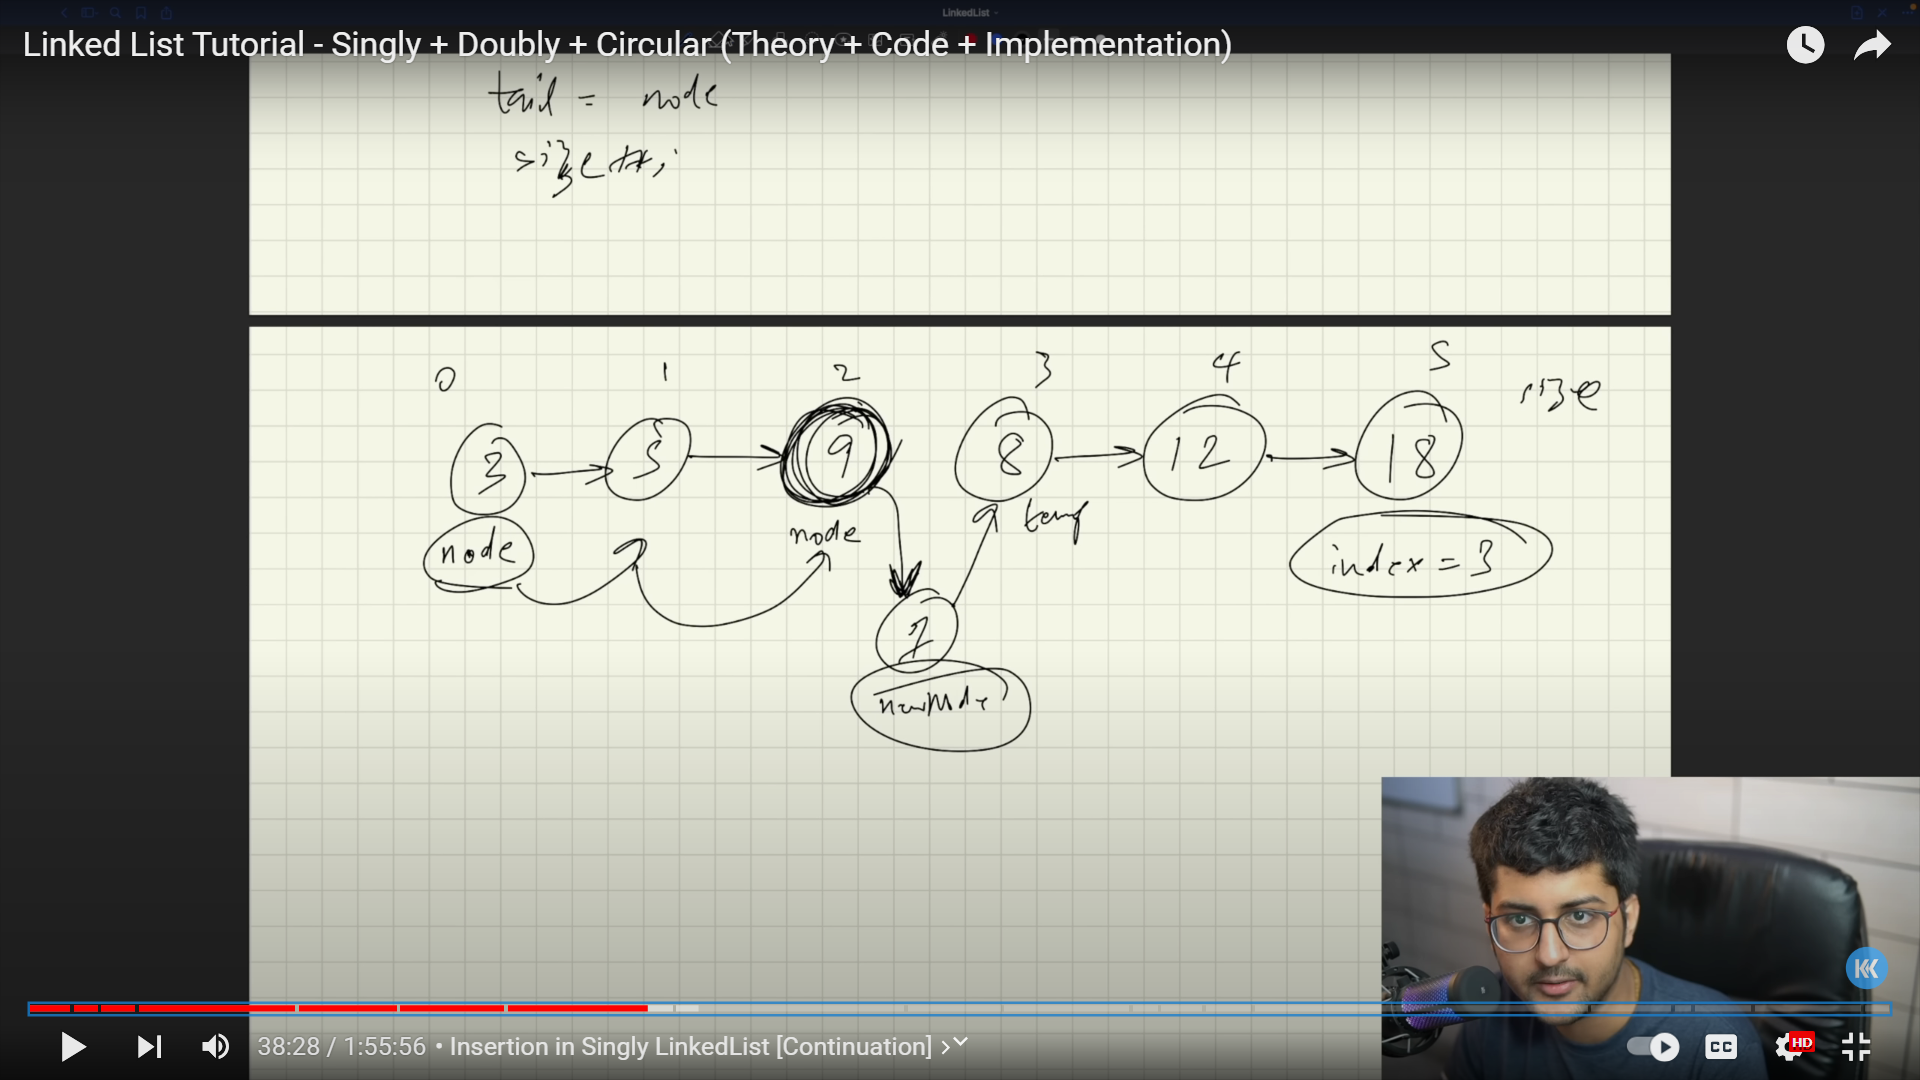 LinkedList
Linked List Tutorial - Singly + Doubly + Circular (Theory + Code + Implementation)
tail = node
size++;
0 1 2 3 4 5
size
3 5 9 8 12 18
node
node
temp
index = 3
7
newNode
38:28 / 1:55:56 • Insertion in Singly LinkedList [Continuation]
CC
HD